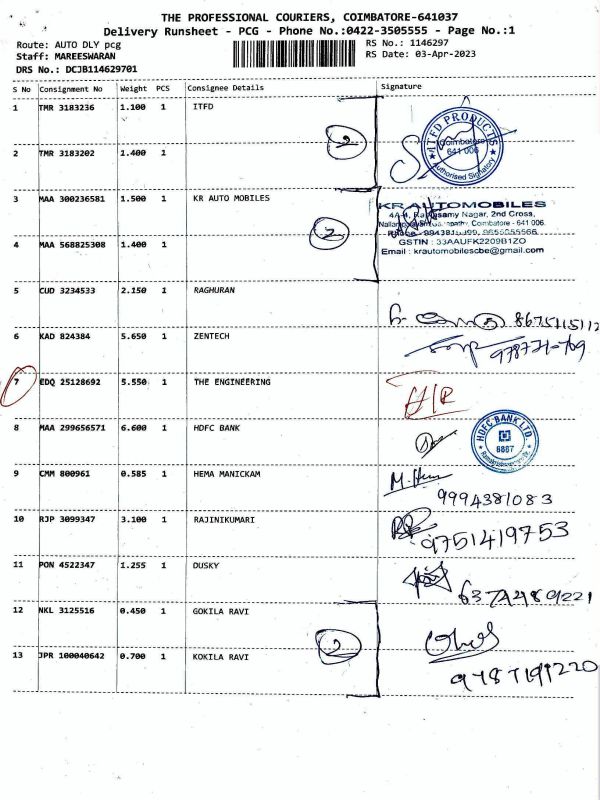 THE PROFESSIONAL COURIERS, COIMBATORE-641037
Delivery Runsheet - PCG - Phone No.:0422-3505555 - Page No.:1
Route: AUTO DLY pcg
RS No.: 1146297
Staff: MAREESWARAN
RS Date: 03-Apr-2023
DRS No.: DCJB114629701
S No Consignment No Weight PCS Consignee Details Signature
1 TMR 3183236 1.100 1 ITFD
2
ITFD PRODUCTS
Coimbatore
641 006
Authorised Signatory
2 TMR 3183202 1.400 1
3 MAA 300236581 1.500 1 KR AUTO MOBILES
KR AUTOMOBILES
Samy Nagar, 2nd Cross,
Coimbatore - 641 006.
2
GSTIN : 33AAUFK2209B1ZO
4 MAA 568825308 1.400 1
Email : krautomobilescbe@gmail.com
5 CUD 3234533 2.150 1 RAGHURAN
8675115112
6 KAD 824384 5.650 1 ZENTECH
7 EDQ 25128692 5.550 1 THE ENGINEERING
8 MAA 299656571 6.600 1 HDFC BANK
HDFC BANK LTD.
9 CMM 800961 0.585 1 HEMA MANICKAM
9994381083
10 RJP 3099347 3.100 1 RAJINIKUMARI
9751419753
11 PON 4522347 1.255 1 DUSKY
12 NKL 3125516 0.450 1 GOKILA RAVI
2
13 JPR 100040642 0.700 1 KOKILA RAVI